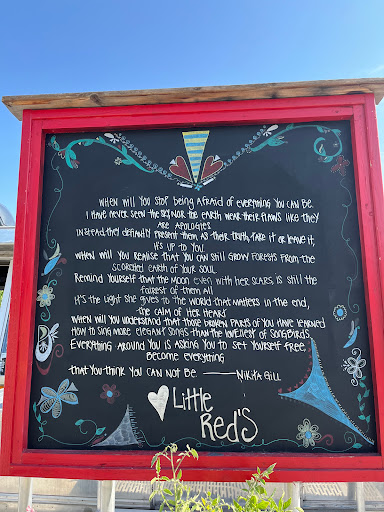 When will you stop being afraid of everything you can be.
I have never seen the sky nor the earth wear their flaws like they
are apologies
Instead they defiantly present them as their truth, take it or leave it,
it's up to you.
When will you realise that you can still grow forests from the
scorched earth of your soul
Remind yourself that the moon even with her scars, is still the
fairest of them all
It's the light she gives to the world that matters in the end
the calm of her heart
When will you understand that those broken parts of you have learned
how to sing more elegant songs than the loveliest of songbirds
Everything around you is asking you to set yourself free.
Become everything
that you think you can not be. — Nikita Gill
Little
Red's